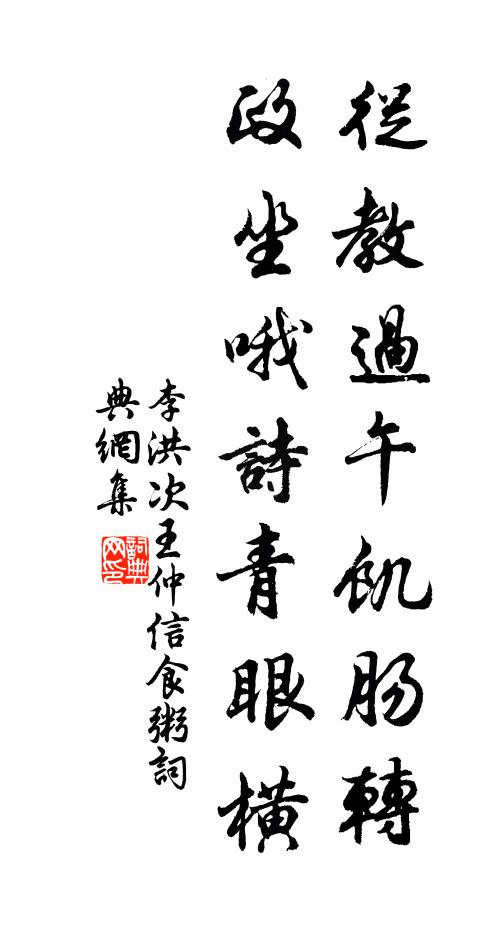 從教過午飢腸轉
政坐哦詩青眼橫
李洪次王仲信食粥詞
典網集
詞典
网印